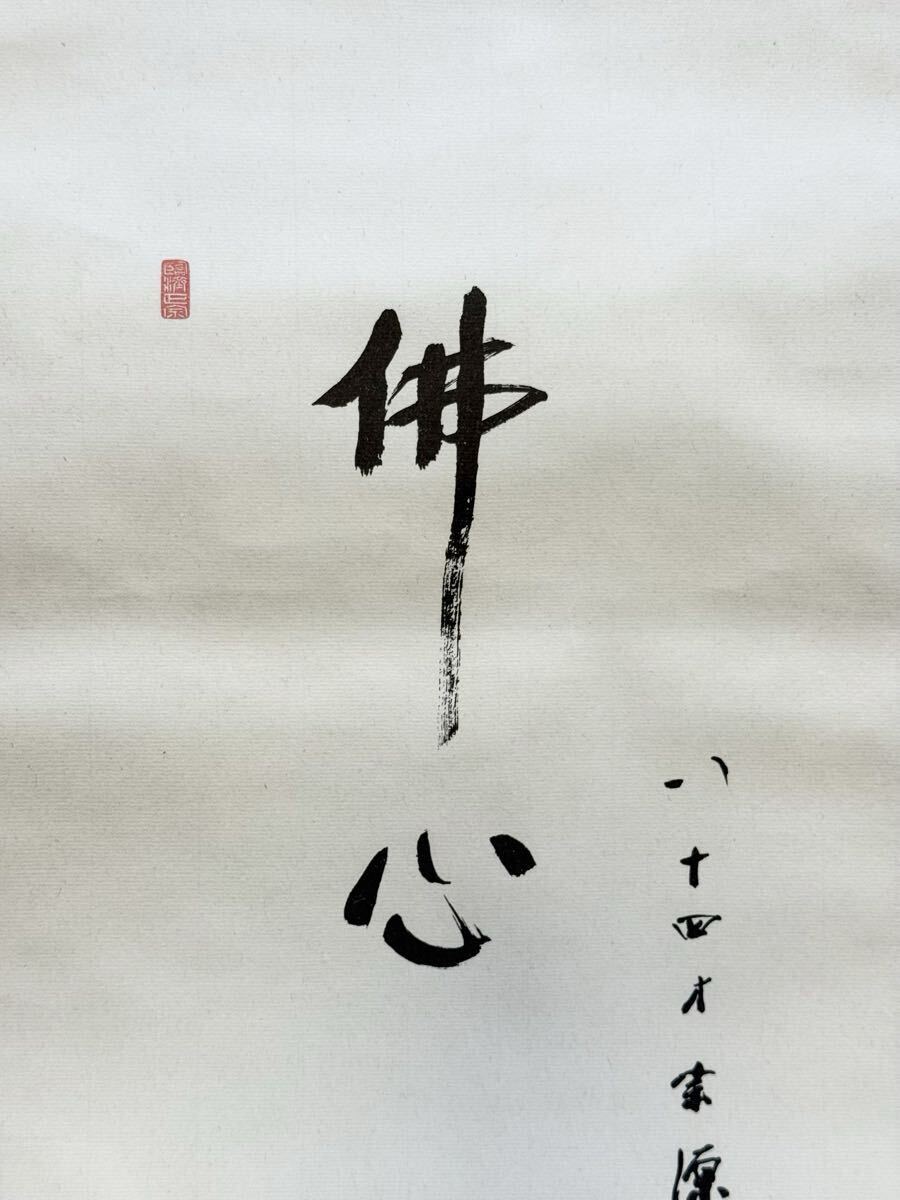 臨済正宗
佛心
八十四才宗源